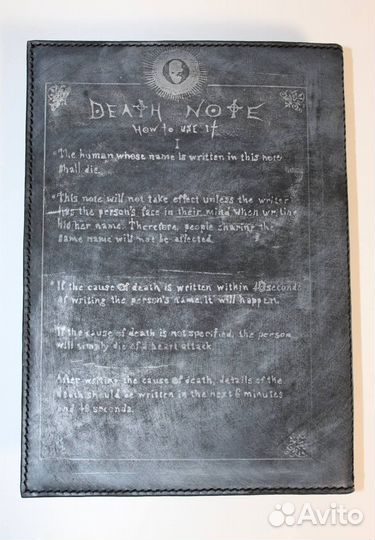 DEATH NOTE
How to use it
I
The human whose name is written in this note
shall die.
This note will not take effect unless the writer
has the person's face in their mind when writing
his/her name. Therefore, people sharing the
same name will not be affected.
If the cause of death is written within 40 seconds
of writing the person's name, it will happen.
If the cause of death is not specified, the person
will simply die of a heart attack.
After writing the cause of death, details of the
death should be written in the next 6 minutes
and 40 seconds.
Avito